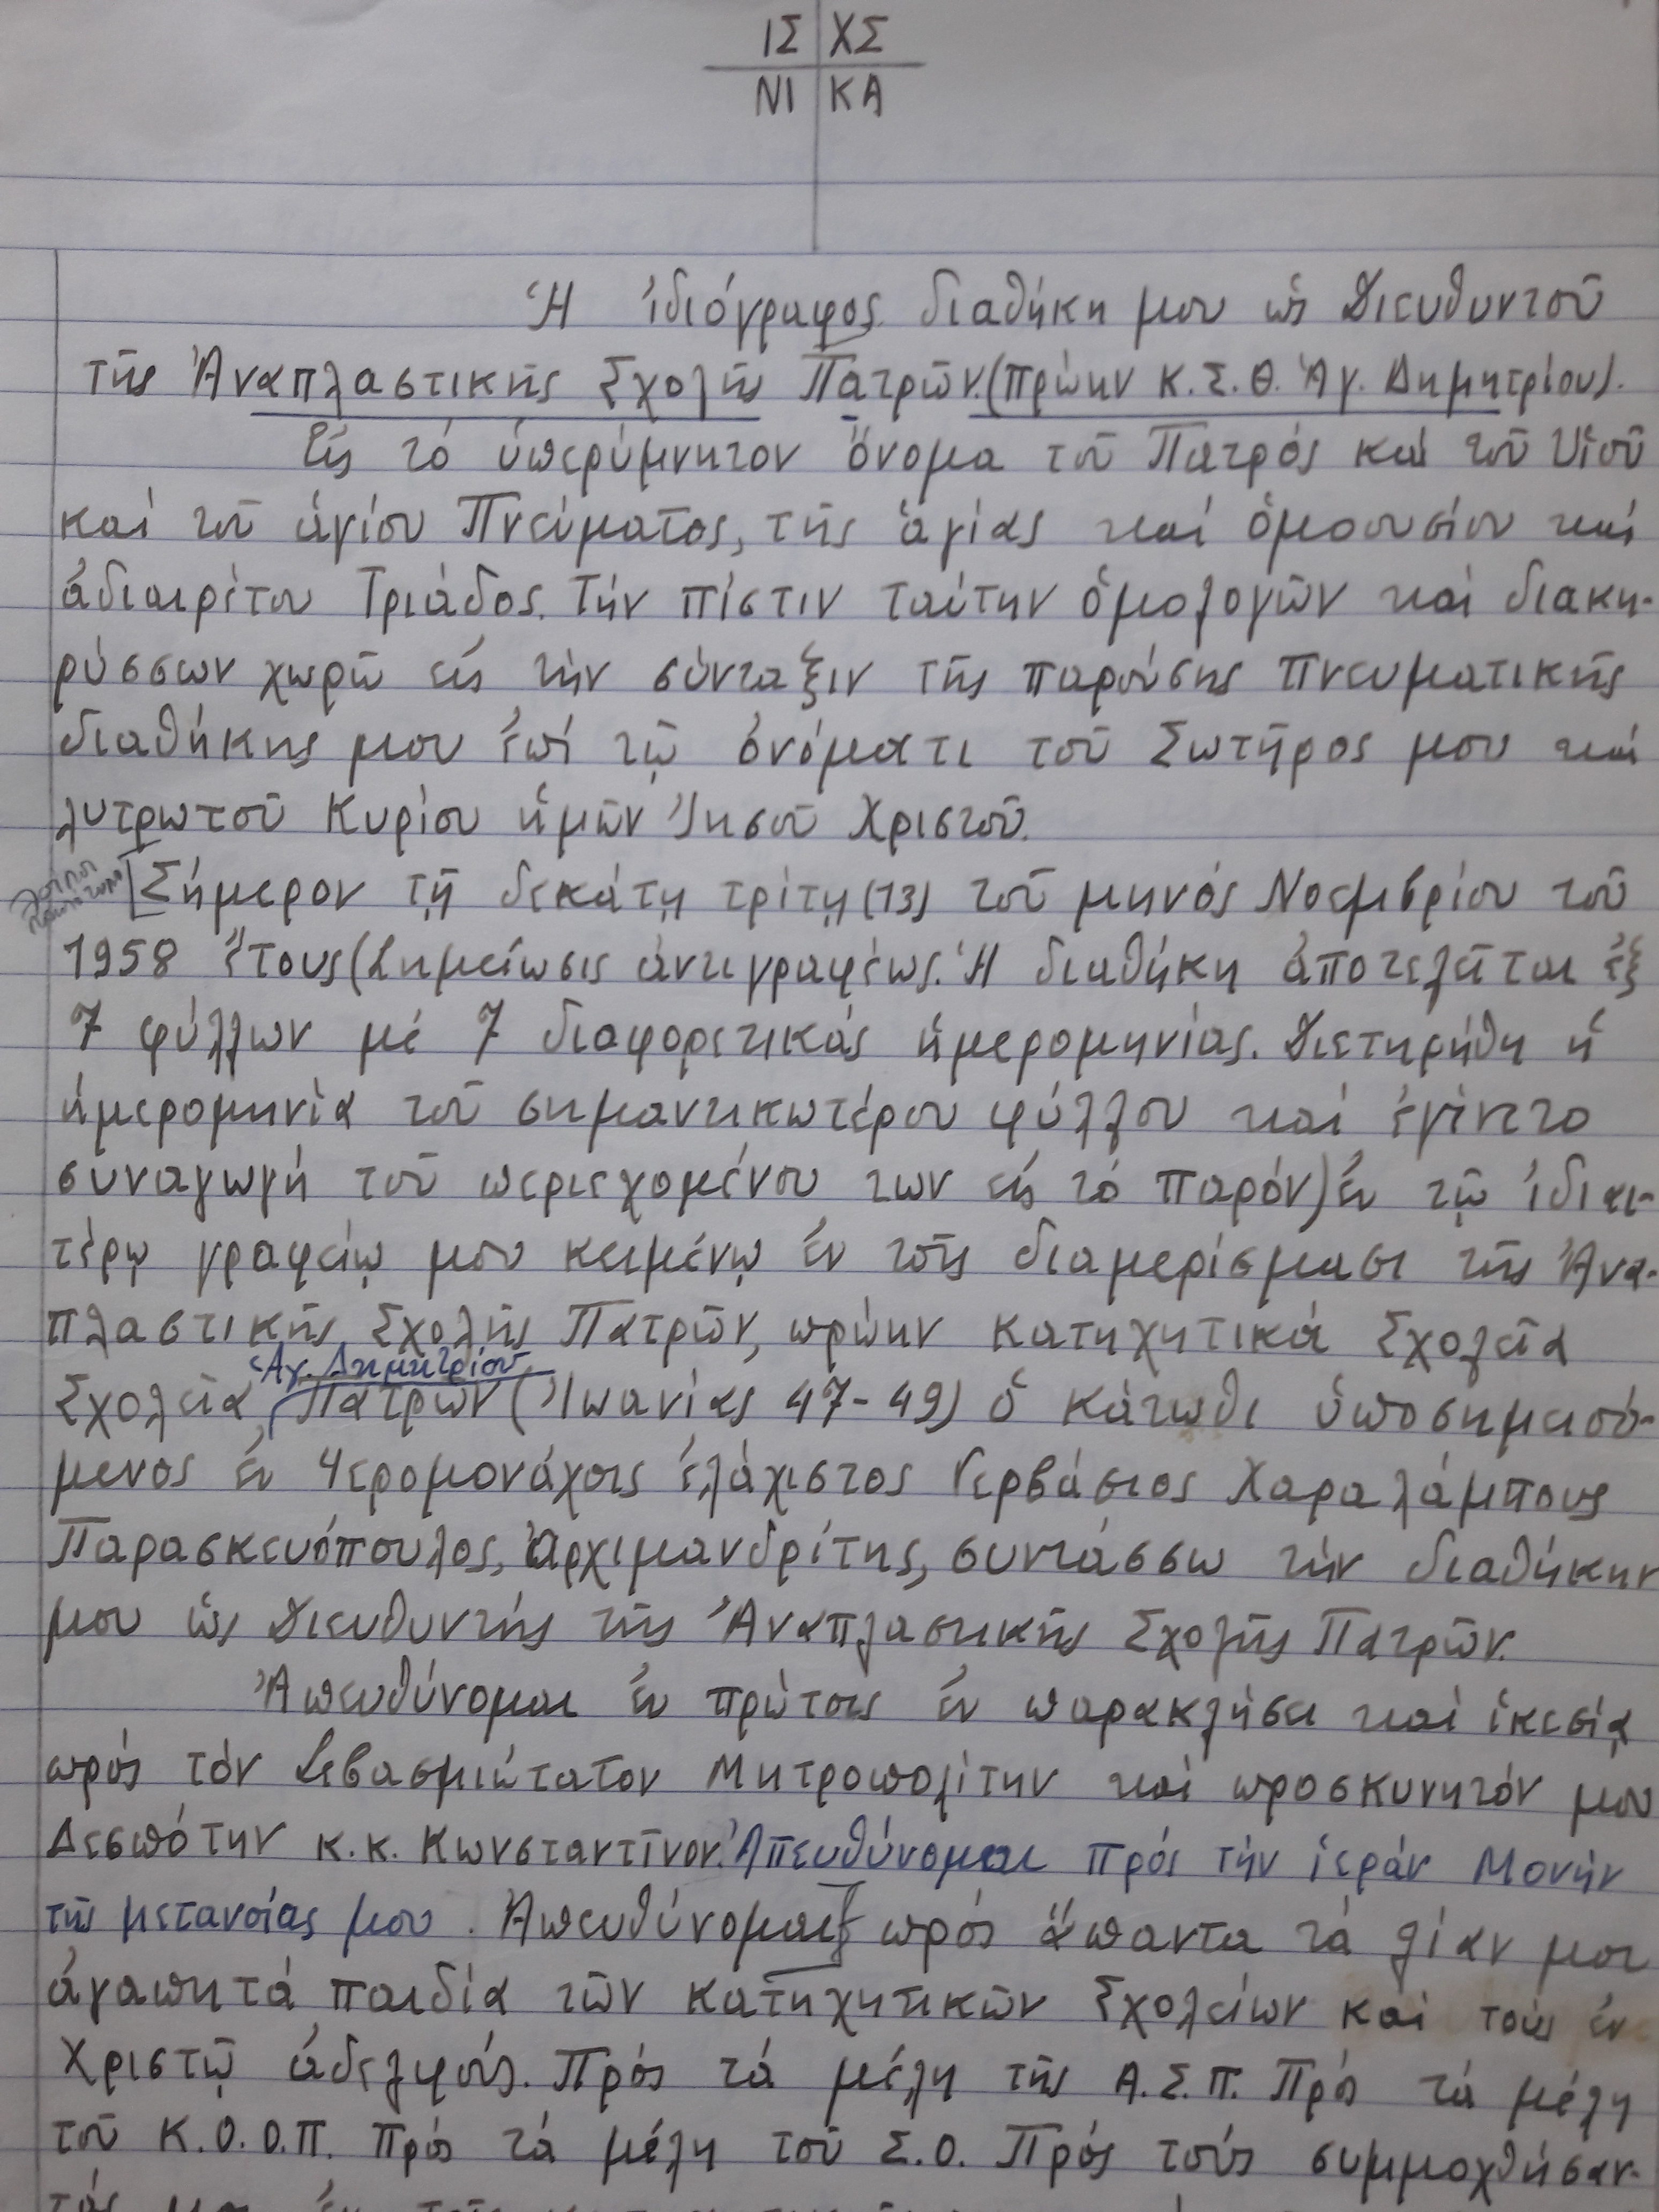 ΙΣ ΧΣ
ΝΙ ΚΑ
Ἡ ἰδιόγραφος διαθήκη μου ὡς Διευθυντοῦ
τῆς Ἀναπλαστικῆς Σχολῆς Πατρῶν. (πρώην Κ.Σ.Θ. Ἁγ. Δημητρίου).
Εἰς τό ὑπερύμνητον ὄνομα τοῦ Πατρός καί τοῦ Υἱοῦ
καί τοῦ ἁγίου Πνεύματος, τῆς ἁγίας καί ὁμοουσίου καί
ἀδιαιρέτου Τριάδος. Τήν πίστιν ταύτην ὁμολογῶν καί διακη-
ρύσσων χωρῶ εἰς τήν σύνταξιν τῆς παρούσης πνευματικῆς
διαθήκης μου ἐπί τῷ ὀνόματι τοῦ Σωτῆρος μου καί
λυτρωτοῦ Κυρίου ἡμῶν Ἰησοῦ Χριστοῦ.
[Σήμερον τῇ δεκάτῃ τρίτῃ (13) τοῦ μηνός Νοεμβρίου τοῦ
1958 ἔτους (Σημείωσις ἀντιγραφέως. Ἡ διαθήκη ἀποτελεῖται ἐξ
7 φύλλων μέ 7 διαφορετικάς ἡμερομηνίας. Διετηρήθη ἡ
ἡμερομηνία τοῦ σημαντικωτέρου φύλλου καί ἐγένετο
συναγωγή τοῦ περιεχομένου των εἰς τό παρόν) ἐν τῷ ἰδιαι-
τέρῳ γραφείῳ μου κειμένῳ ἐν τοῖς διαμερίσμασι τῆς Ἀνα-
πλαστικῆς Σχολῆς Πατρῶν, πρώην Κατηχητικά Σχολεῖα
Ἁγ. Δημητρίου
Σχολεῖα Πατρῶν (Ἰωανίας 47-49) ὁ κάτωθι ὑποσημειού-
μενος ἐν Ἱερομονάχοις ἐλάχιστος Γερβάσιος Χαραλάμπους
Παρασκευόπουλος, Ἀρχιμανδρίτης, συντάσσω τήν διαθήκην
μου ὡς Διευθυντής τῆς Ἀναπλαστικῆς Σχολῆς Πατρῶν.
Ἀπευθύνομαι ἐν πρώτοις ἐν παρακλήσει καί ἱκεσίᾳ
πρός τόν Σεβασμιώτατον Μητροπολίτην καί προσκυνητόν μου
Δεσπότην κ.κ. Κωνσταντῖνον. Ἀπευθύνομαι πρός τήν ἱεράν Μονήν
τῆς μετανοίας μου. Ἀπευθύνομαι πρός ἅπαντα τά λίαν μοι
ἀγαπητά παιδία τῶν Κατηχητικῶν Σχολείων καί τούς ἐν
Χριστῷ ἀδελφούς. Πρός τά μέλη τῆς Α.Σ.Π. Πρός τά μέλη
τοῦ Κ.Ο.Ο.Π. Πρός τά μέλη τοῦ Σ.Ο. Πρός τούς συμμοχθήσαν-